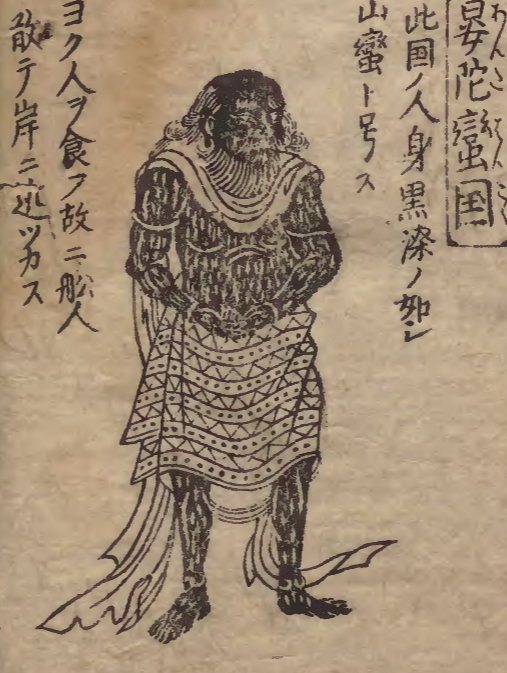 晏陀蠻国
此国ノ人身黒漆ノ如シ
山蠻ト号ス
ヨク人ヲ食フ故ニ舩人
敢テ岸ニ近ツカス